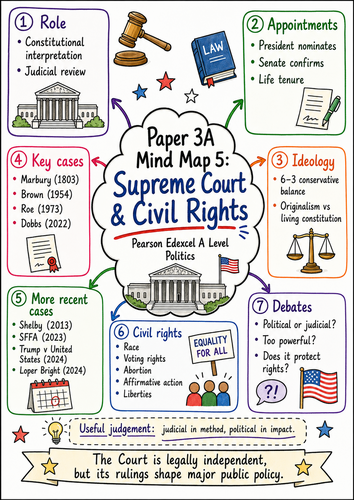 1 Role
• Constitutional
interpretation
• Judicial review
LAW
2 Appointments
• President nominates
• Senate confirms
• Life tenure
Paper 3A
Mind Map 5:
Supreme Court
& Civil Rights
Pearson Edexcel A Level
Politics
4 Key cases
• Marbury (1803)
• Brown (1954)
• Roe (1973)
• Dobbs (2022)
3 Ideology
• 6–3 conservative
balance
• Originalism vs
living constitution
5 More recent
cases
• Shelby (2013)
• SFFA (2023)
• Trump v United
States (2024)
• Loper Bright (2024)
6 Civil rights
• Race
• Voting rights
• Abortion
• Affirmative action
• Liberties
EQUALITY
FOR ALL
7 Debates
• Political or judicial?
• Too powerful?
• Does it protect
rights?
?!
Useful judgement: judicial in method, political in impact.
The Court is legally independent,
but its rulings shape major public policy.